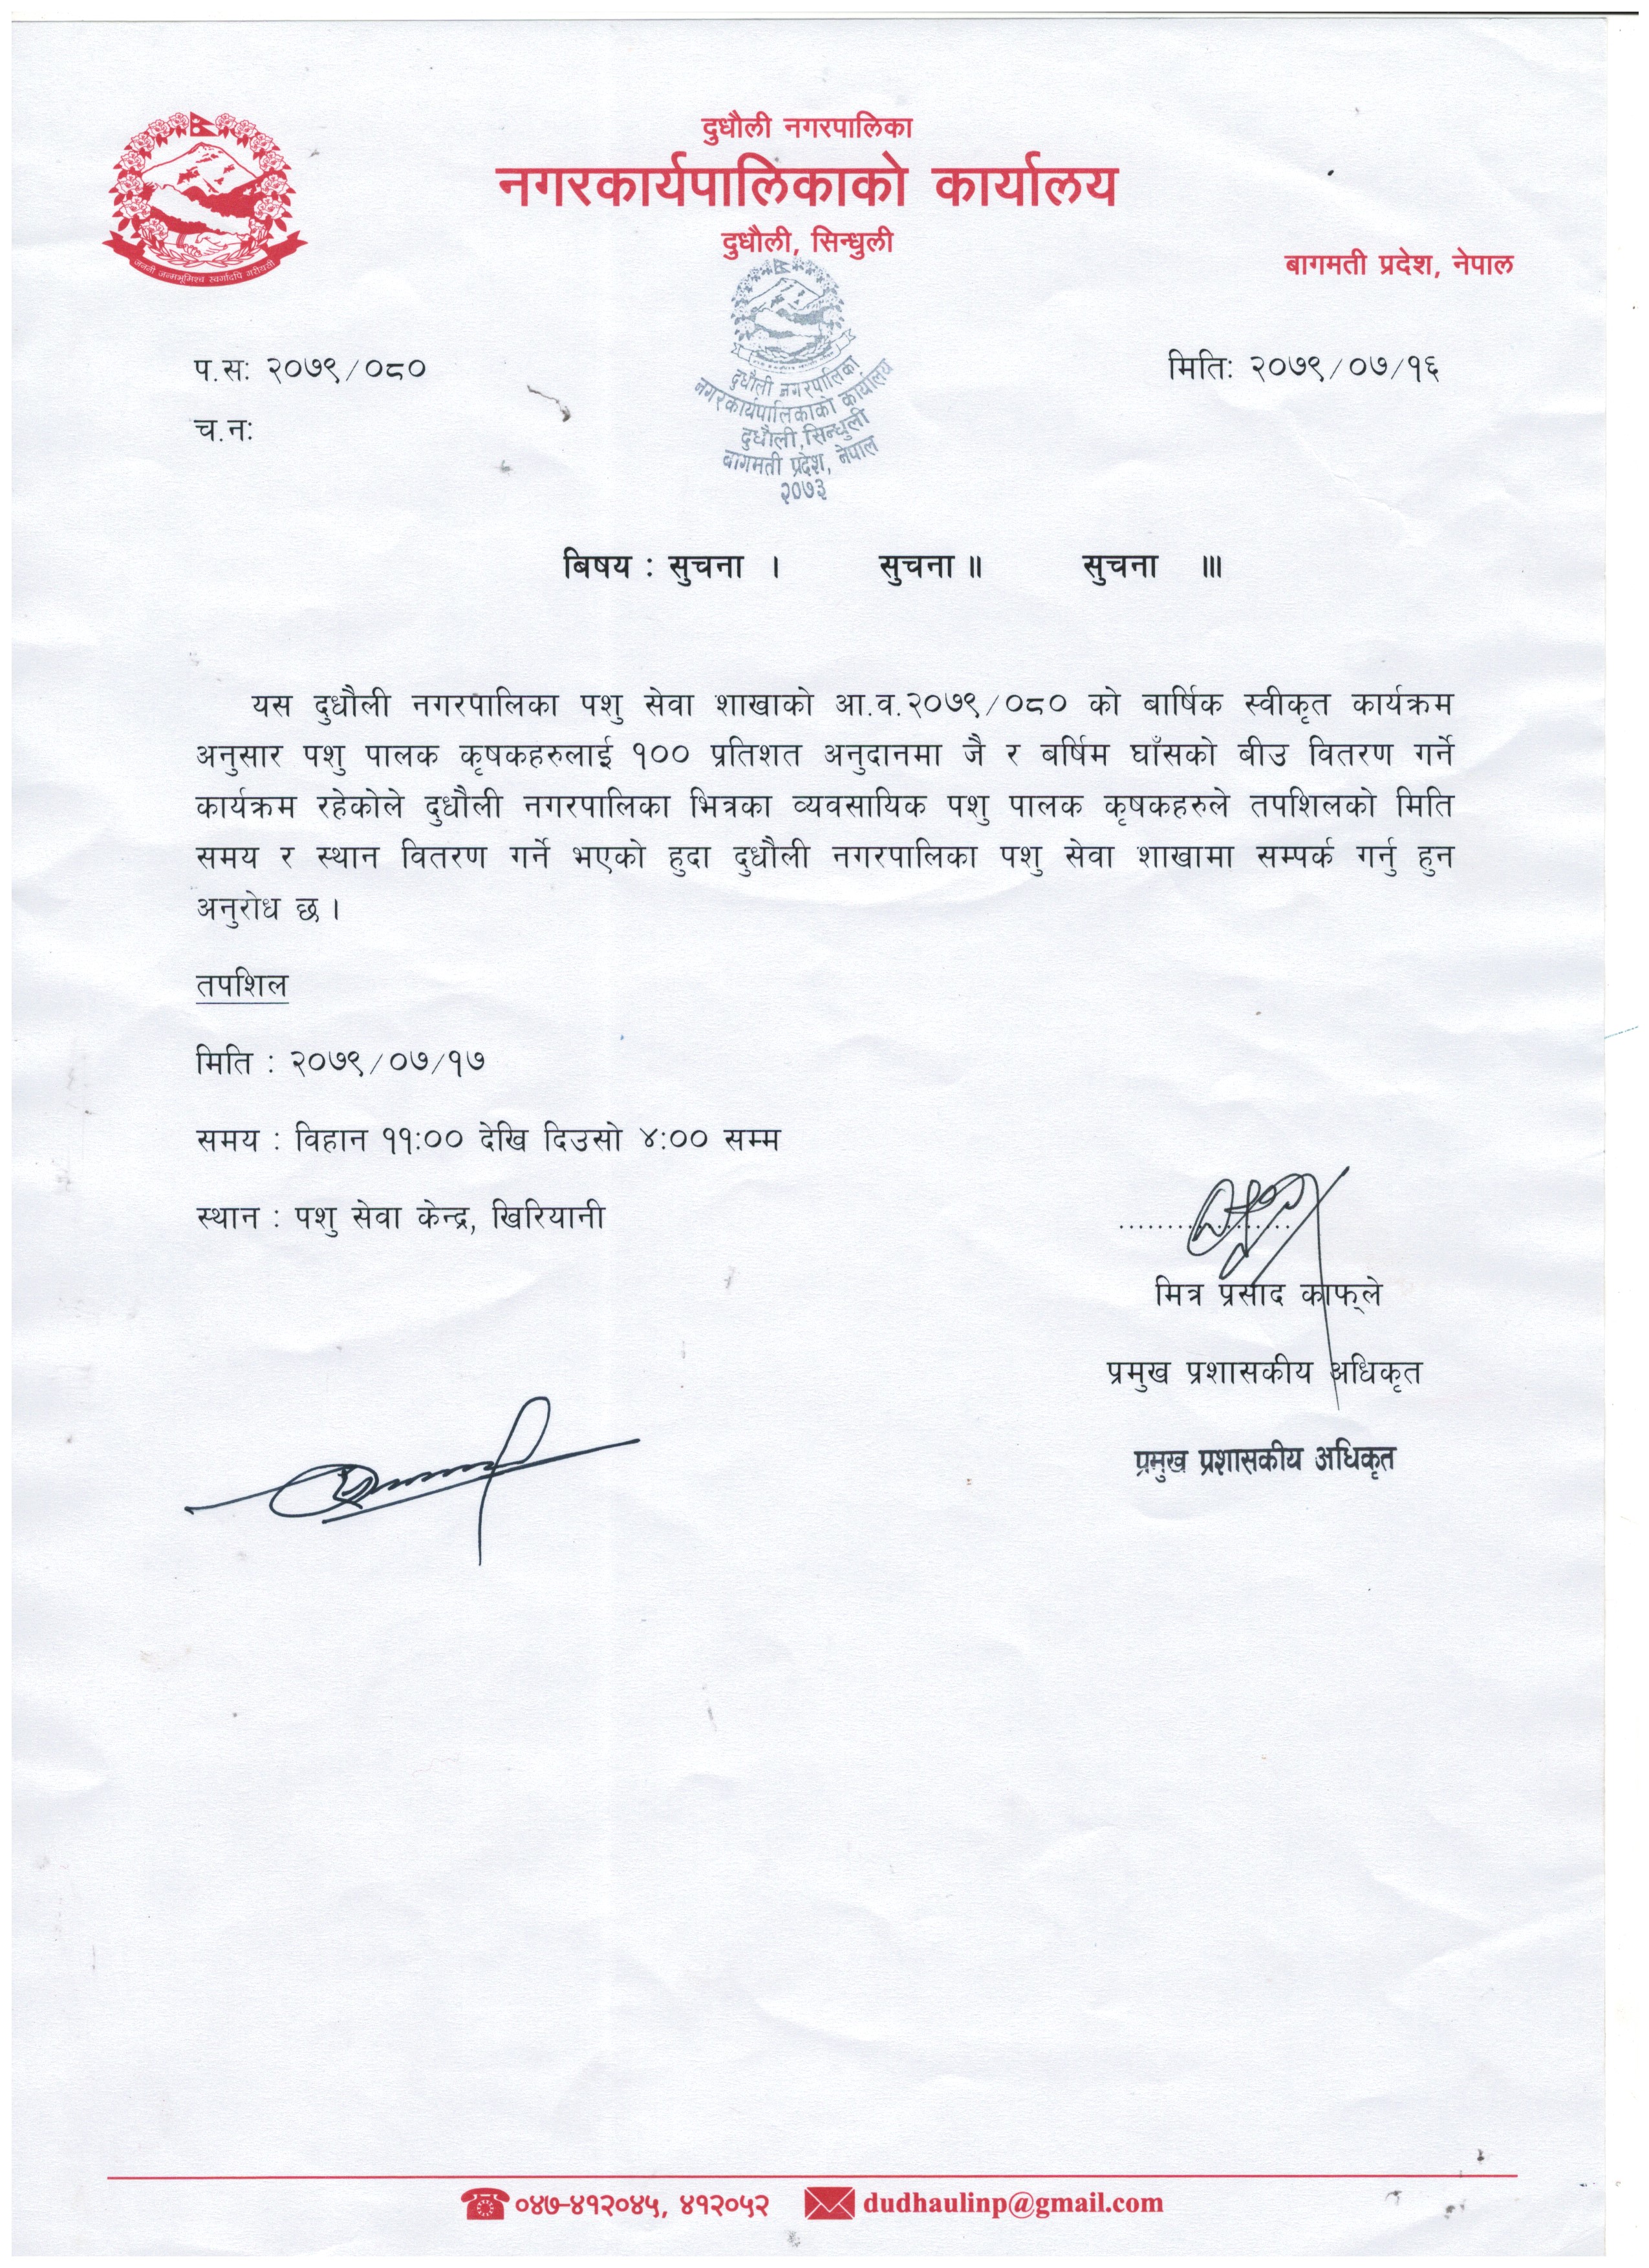 दुधौली नगरपालिका
नगरकार्यपालिकाको कार्यालय
दुधौली, सिन्धुली
बागमती प्रदेश, नेपाल
जननी जन्मभूमिश्च स्वर्गादपि गरीयसी
दुधौली नगरपालिका
नगरकार्यपालिकाको कार्यालय
दुधौली, सिन्धुली
बागमती प्रदेश, नेपाल
२०७३
प.स: २०७९/०८०
मिति: २०७९/०७/१६
च.न:
बिषय : सुचना । सुचना ॥ सुचना ॥।
यस दुधौली नगरपालिका पशु सेवा शाखाको आ.व.२०७९/०८० को बार्षिक स्वीकृत कार्यक्रम
अनुसार पशु पालक कृषकहरुलाई १०० प्रतिशत अनुदानमा जै र बर्षिम घाँसको बीउ वितरण गर्ने
कार्यक्रम रहेकोले दुधौली नगरपालिका भित्रका व्यवसायिक पशु पालक कृषकहरुले तपशिलको मिति
समय र स्थान वितरण गर्ने भएको हुदा दुधौली नगरपालिका पशु सेवा शाखामा सम्पर्क गर्नु हुन
अनुरोध छ ।
तपशिल
मिति : २०७९/०७/१७
समय : विहान ११:०० देखि दिउसो ४:०० सम्म
स्थान : पशु सेवा केन्द्र, खिरियानी
मित्र प्रसाद काफ्ले
प्रमुख प्रशासकीय अधिकृत
प्रमुख प्रशासकीय अधिकृत
०४७-४१२०४५, ४१२०५२ dudhaulinp@gmail.com